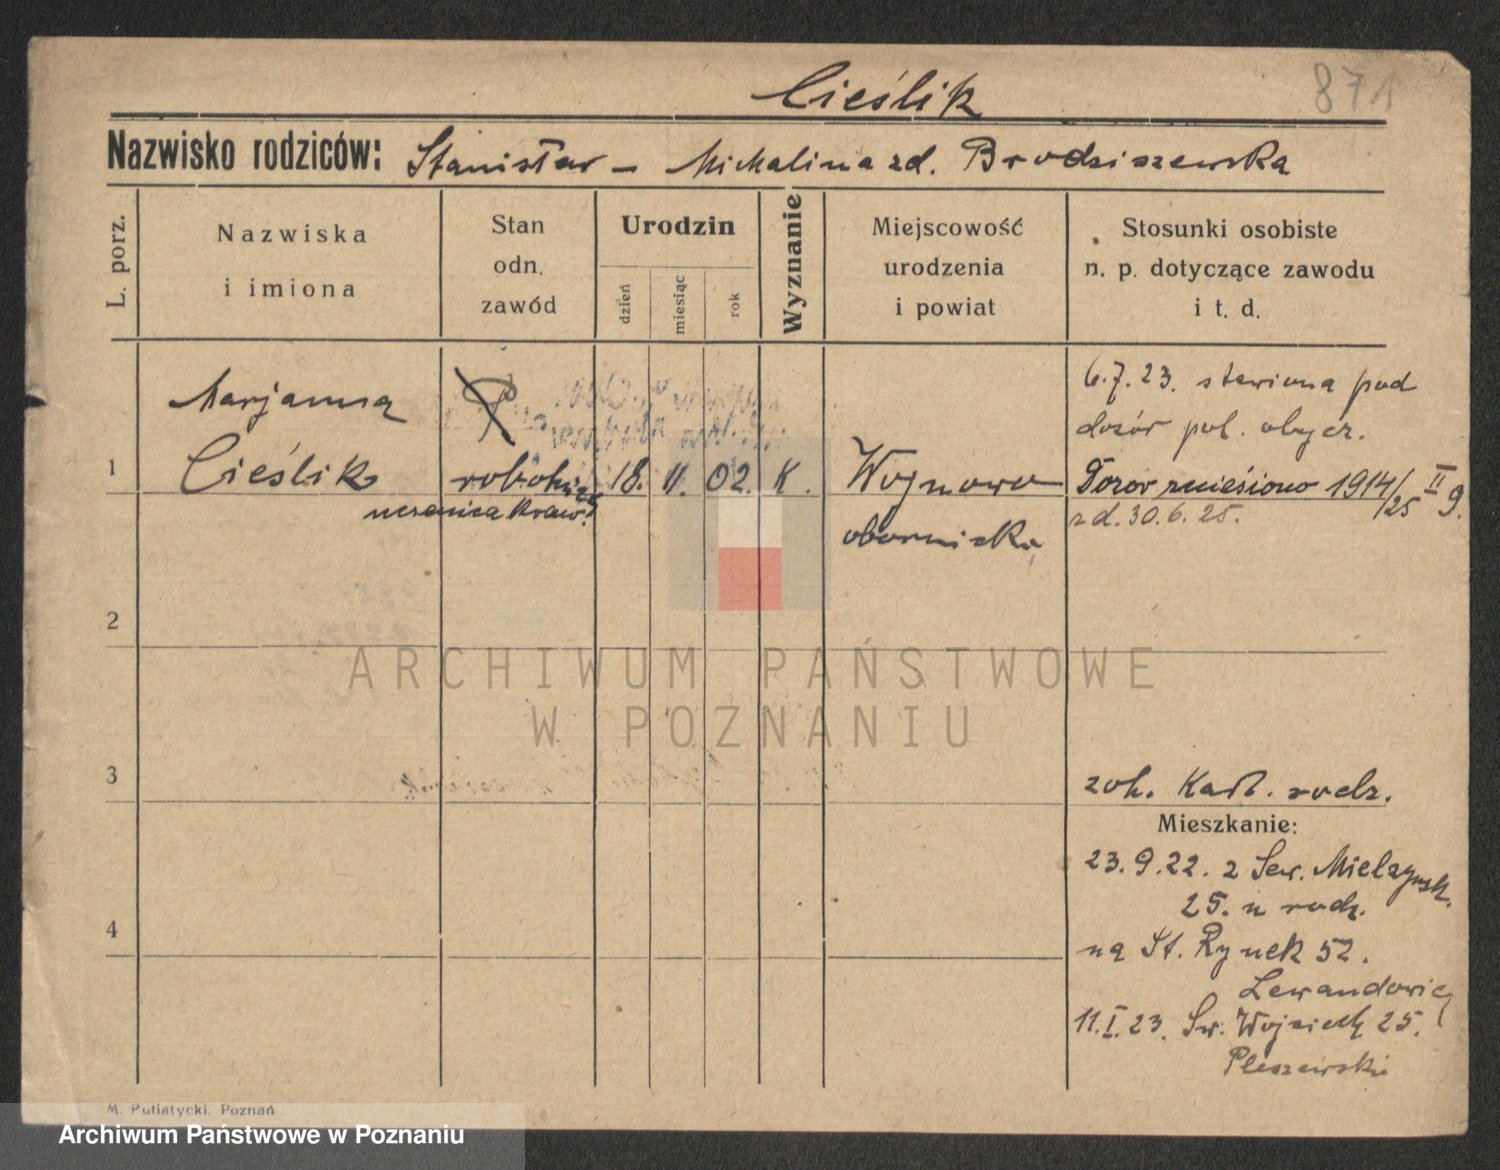 Cieślik
871
Nazwisko rodziców: Stanisław – Michalina zd. Brodziszewska
L. porz.
Nazwiska
i imiona
Stan
odn.
zawód
Urodzin
dzień
miesiąc
rok
Wyznanie
Miejscowość
urodzenia
i powiat
Stosunki osobiste
n. p. dotyczące zawodu
i t. d.
1
Marjanna
Cieślik
P
robotnica
uczenica kraw.
18. 11. 02. K.
Wojnowo
obornicka
6.7.23. stawiona pod
dozór pol. obycz.
Dozór zniesiono 1914/25 II 9.
z d. 30.6.25.
2
3
4
zob. Kart. rodz.
Mieszkanie:
23.9.22. z Sew. Mielżyńsk.
25. u rodz.
na St. Rynek 52.
Lewandowicz
11.I.23. Św. Wojciech 25.
Pleszewski
M. Putiatycki, Poznań
ARCHIWUM PAŃSTWOWE
W POZNANIU
Archiwum Państwowe w Poznaniu